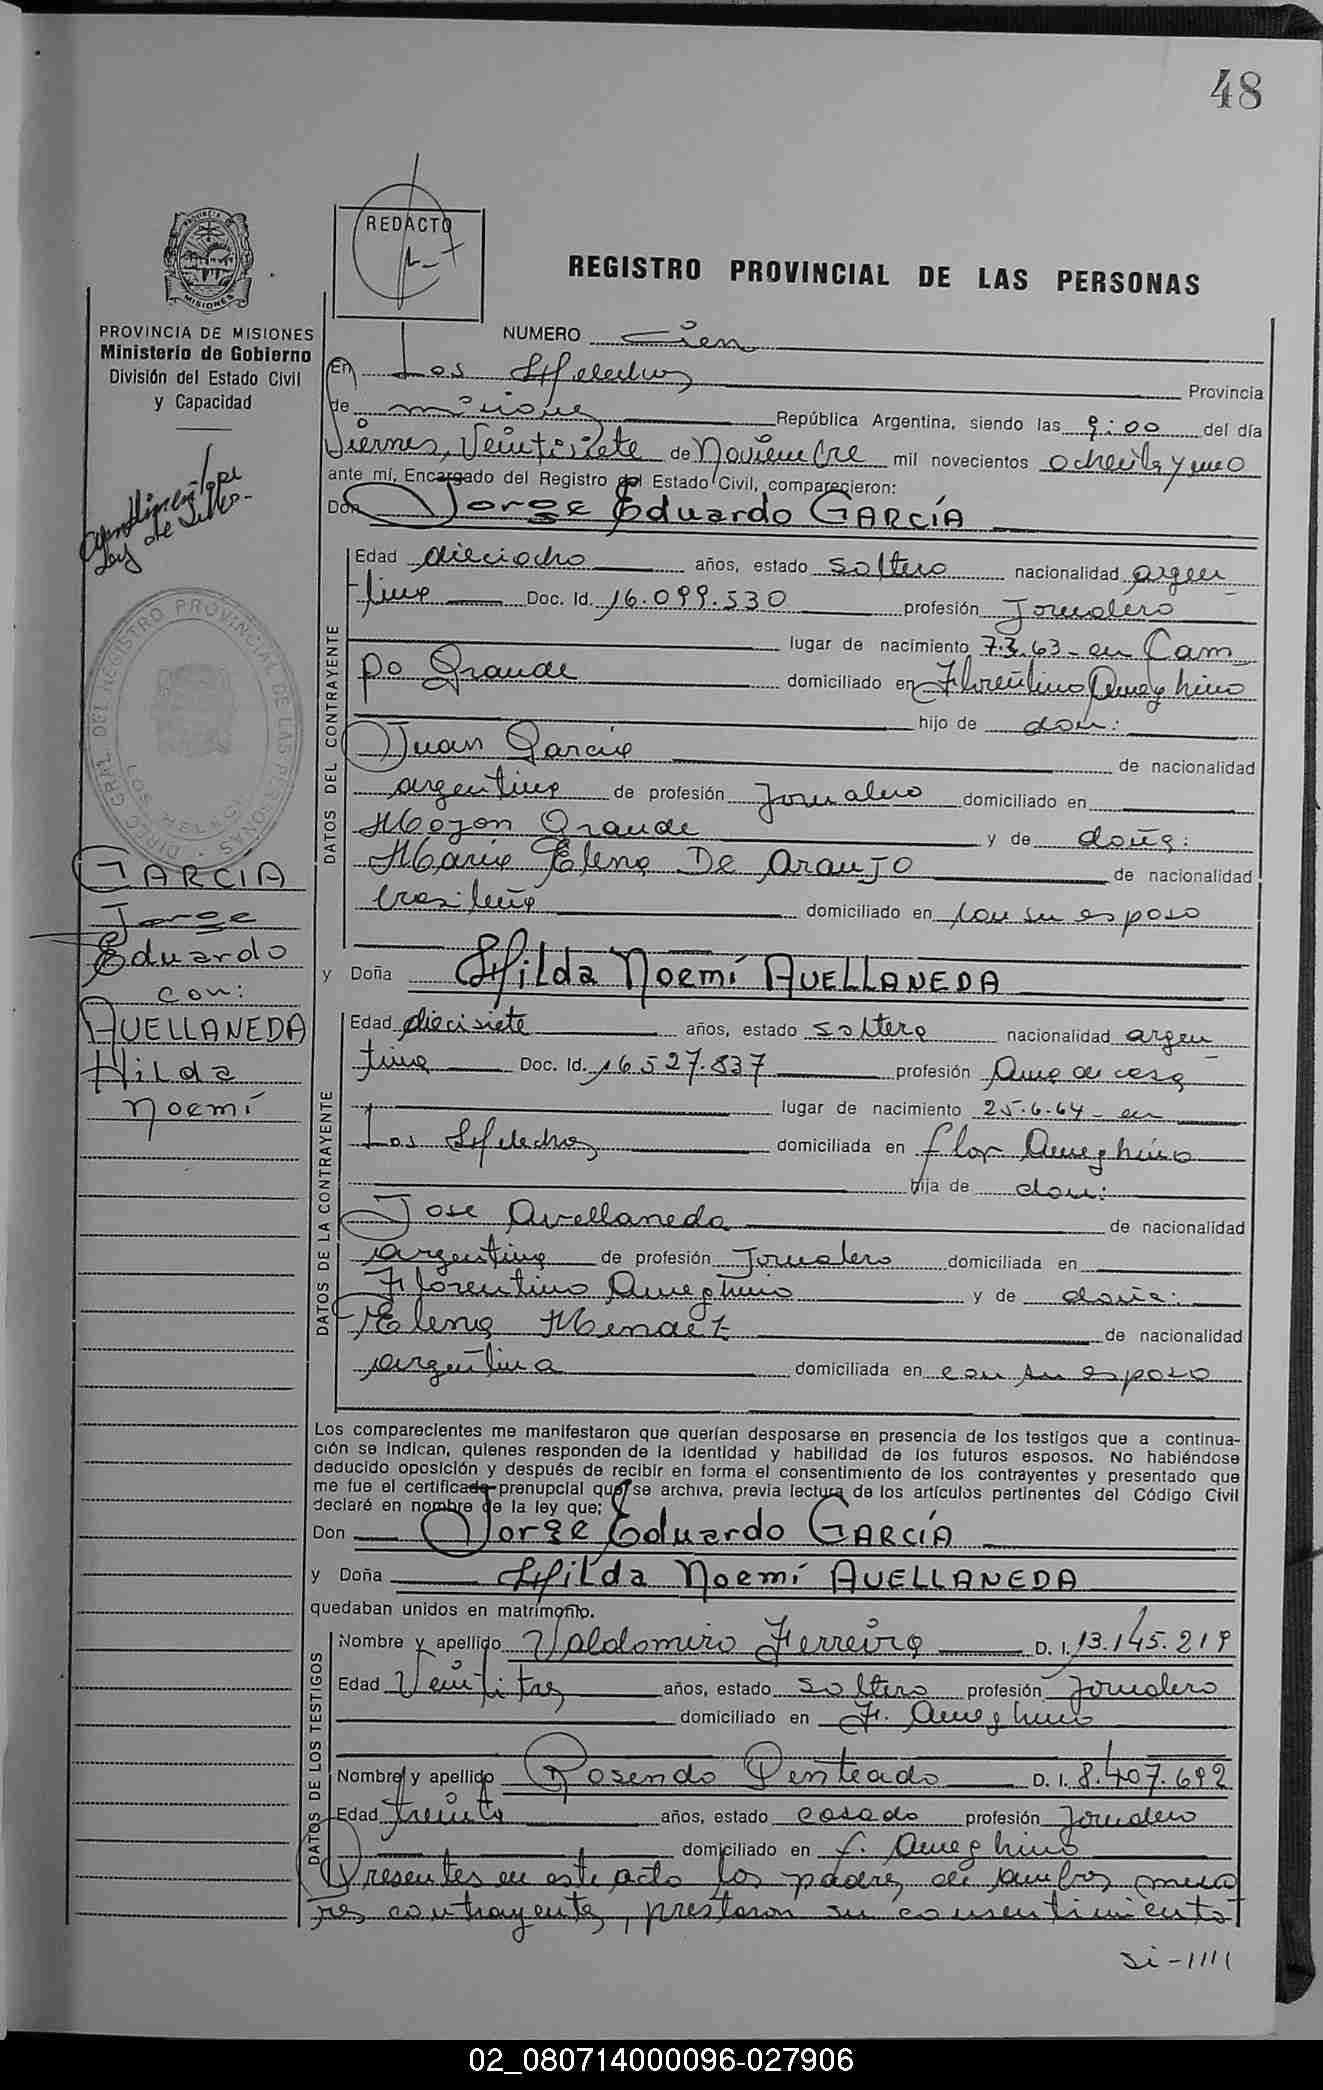 48
REDACTO
REGISTRO PROVINCIAL DE LAS PERSONAS
PROVINCIA DE MISIONES
Ministerio de Gobierno
División del Estado Civil
y Capacidad
MISIONES
NUMERO Cien
En Los Helechos Provincia
de Misiones República Argentina, siendo las 9:00 del día
Viernes, Veintisiete de Noviembre mil novecientos ochenta y uno
ante mí, Encargado del Registro del Estado Civil, comparecieron:
Don Jorge Eduardo GARCÍA
DATOS DEL CONTRAYENTE
Edad dieciocho años, estado soltero nacionalidad argen
tina Doc. Id. 16.099.530 profesión Jornalero
lugar de nacimiento 7.3.63 - en Cam
po Grande domiciliado en Florentino Ameghino
hijo de don:
Juan Garcia de nacionalidad
argentina de profesión Jornalero domiciliado en
Mojon Grande y de doña:
Maria Elena De Araujo de nacionalidad
brasileña domiciliado en con su esposo
y Doña Hilda Noemí AVELLANEDA
DATOS DE LA CONTRAYENTE
Edad diecisiete años, estado soltera nacionalidad argen
tina Doc. Id. 16.527.837 profesión Ama de casa
lugar de nacimiento 25.6.64 - en
Los Helechos domiciliada en Flor Ameghino
hija de don:
Jose Avellaneda de nacionalidad
argentina de profesión Jornalero domiciliada en
Florentino Ameghino y de doña:
Elena de nacionalidad
argentina domiciliada en con su esposo
Los comparecientes me manifestaron que querían desposarse en presencia de los testigos que a continua-
ción se indican, quienes responden de la identidad y habilidad de los futuros esposos. No habiéndose
deducido oposición y después de recibir en forma el consentimiento de los contrayentes y presentado que
me fue el certificado prenupcial que se archiva, previa lectura de los artículos pertinentes del Código Civil
declaré en nombre de la ley que;
Don Jorge Eduardo GARCÍA
y Doña Hilda Noemí AVELLANEDA
quedaban unidos en matrimonio.
DATOS DE LOS TESTIGOS
Nombre y apellido Valdomiro Ferreira D. I. 13.145.219
Edad Veintitres años, estado soltero profesión Jornalero
domiciliado en F. Ameghino
Nombre y apellido Rosendo Penteado D. I. 8.407.692
Edad treinta años, estado casado profesión Jornalero
domiciliado en F. Ameghino
Presentes en este acto los padres de ambos meno
res contrayentes, prestaron su consentimiento
Si-1111
ley de Sellos-
DIREC. GRAL DEL REGISTRO PROVINCIAL DE LAS PERSONAS
LOS HELECHOS
GARCÍA
Jorge
Eduardo
con:
AVELLANEDA
Hilda
Noemí
02_080714000096-027906